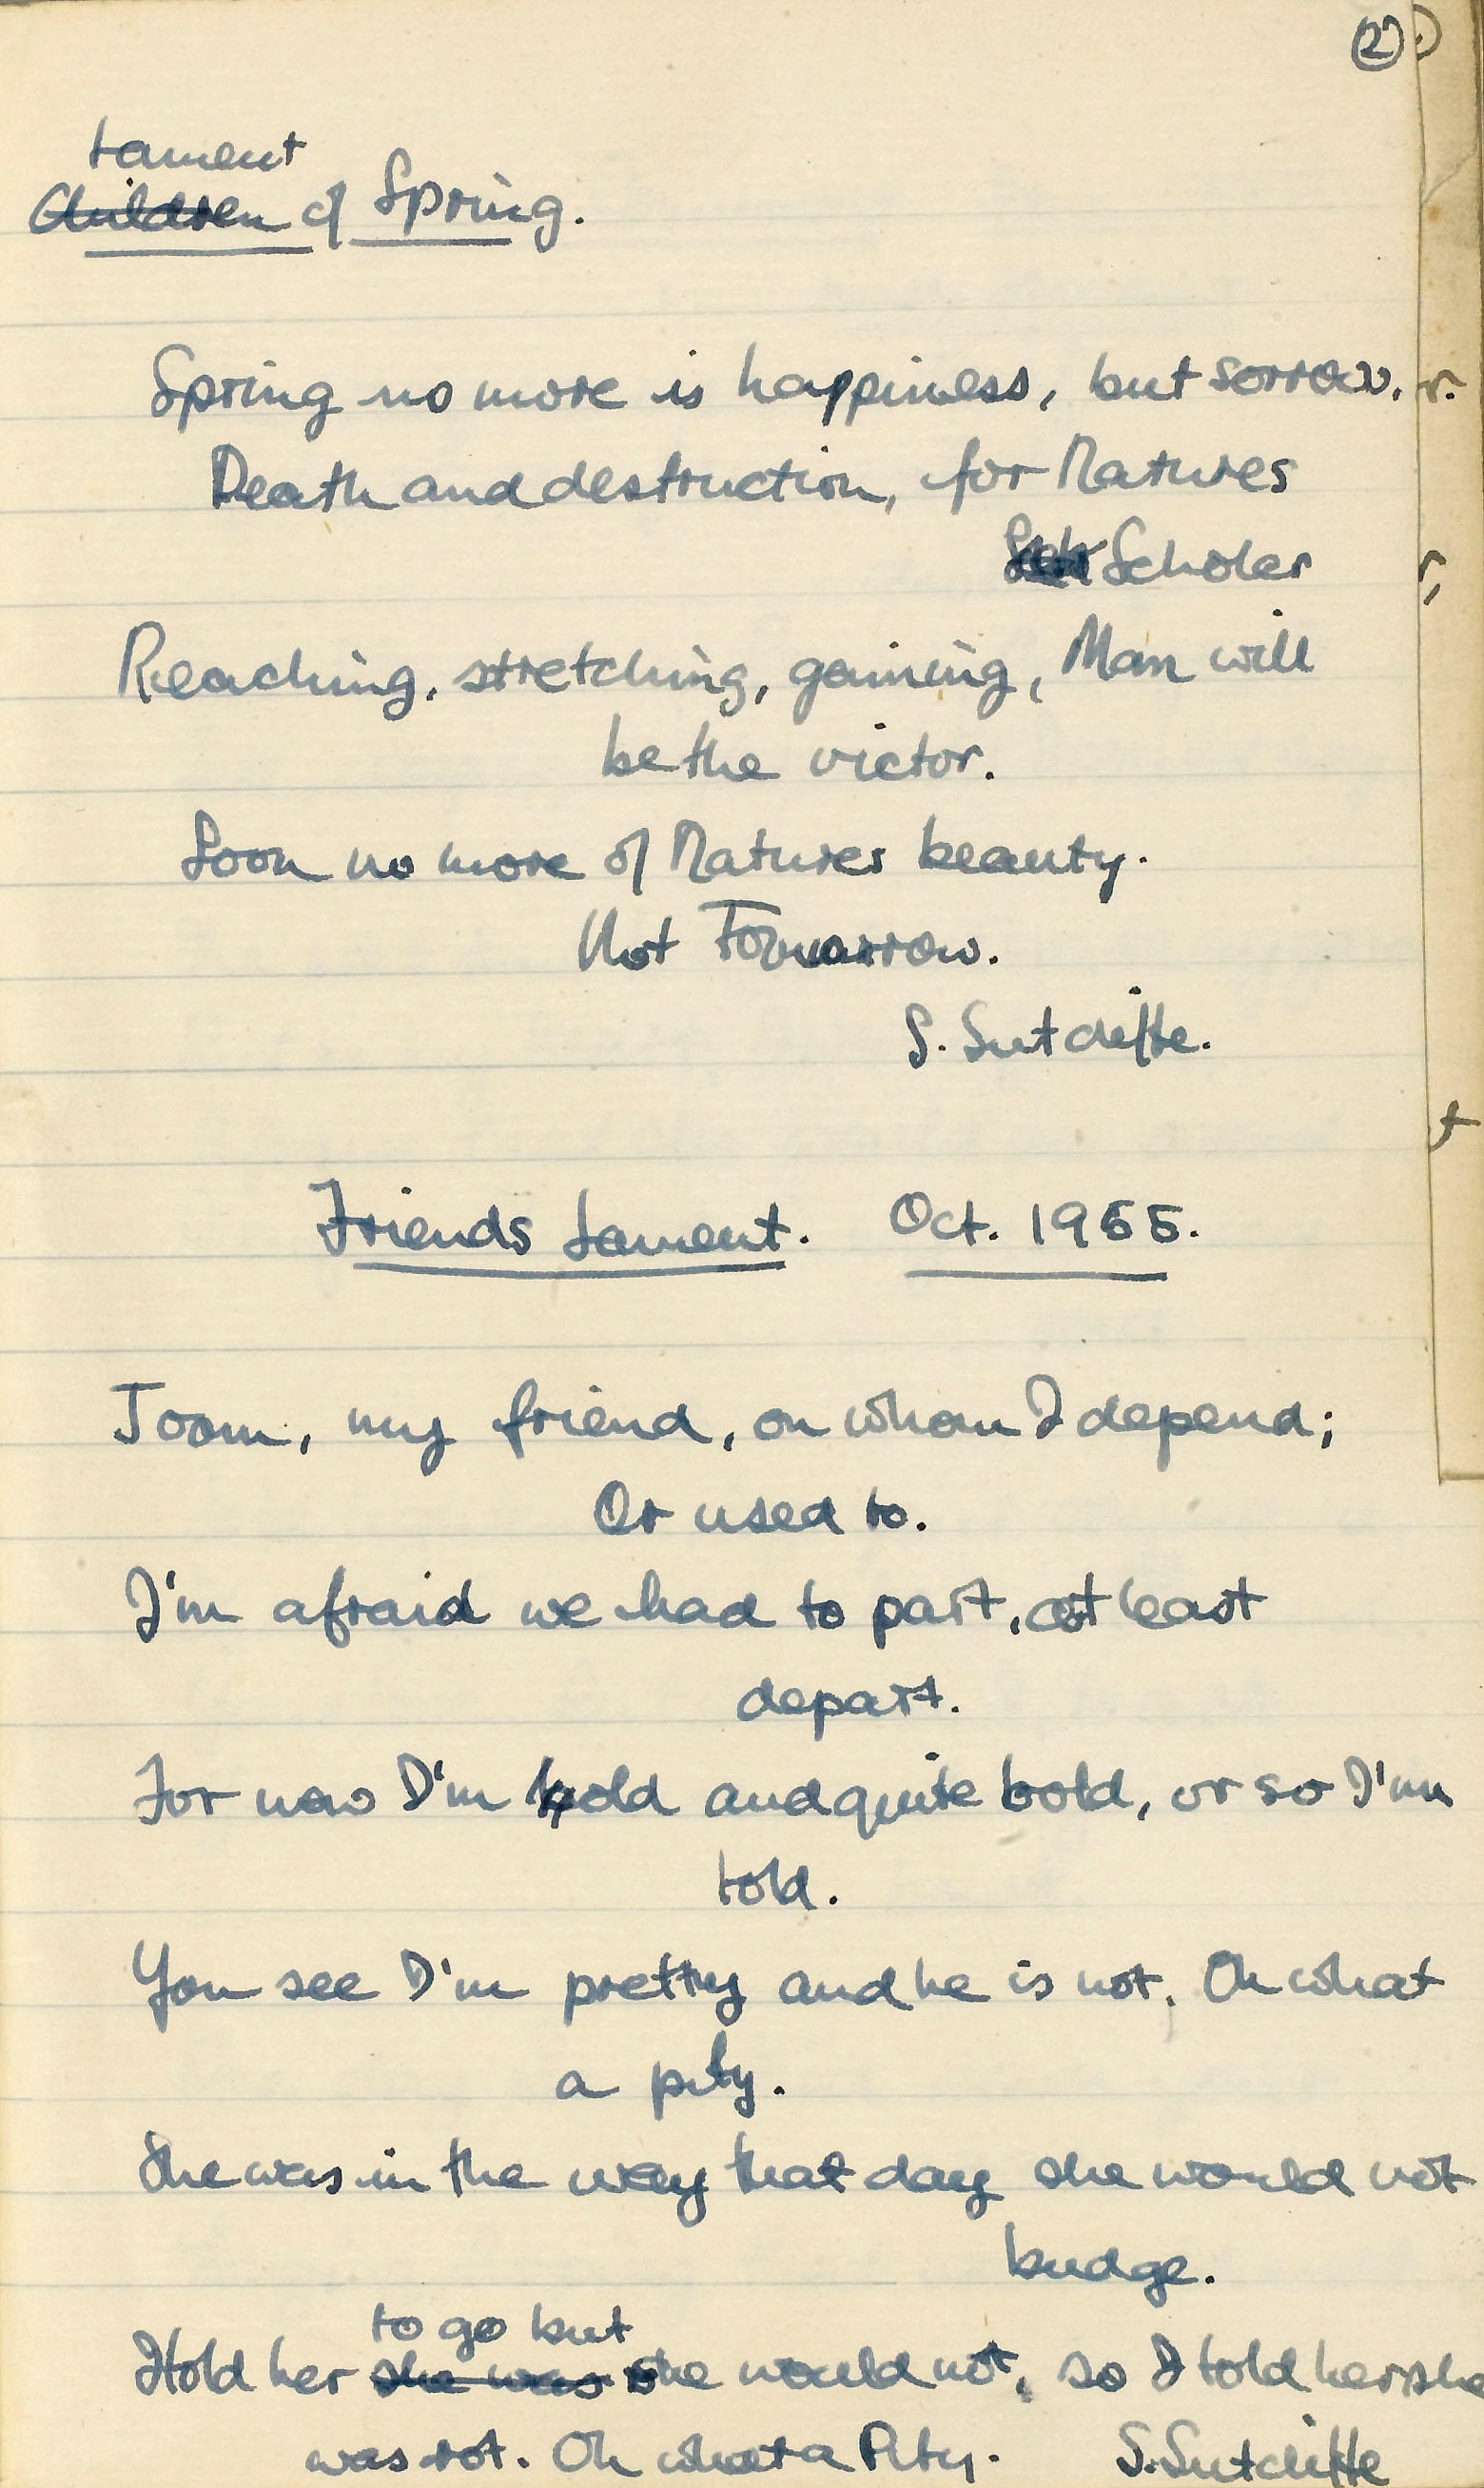 (2)
Lament
Children of Spring.
Spring no more is happiness, but sorrow.
Death and destruction, for Natures
Scholer
Reaching, stretching, gaining, Man will
be the victor.
Soon no more of Natures beauty.
Not Tomarrow.
S. Sutcliffe.
Friends Lament. Oct. 1955.
Toom, my friend, on whom I depend;
Or used to.
I'm afraid we had to part, at least
depart.
For now I'm old and quite bold, or so I'm
told.
You see I'm pretty and he is not. Oh what
a pity.
She was in the way that day she would not
budge.
to go but
I told her she was she would not, so I told her she
was rot. Oh what a Pity. S. Sutcliffe